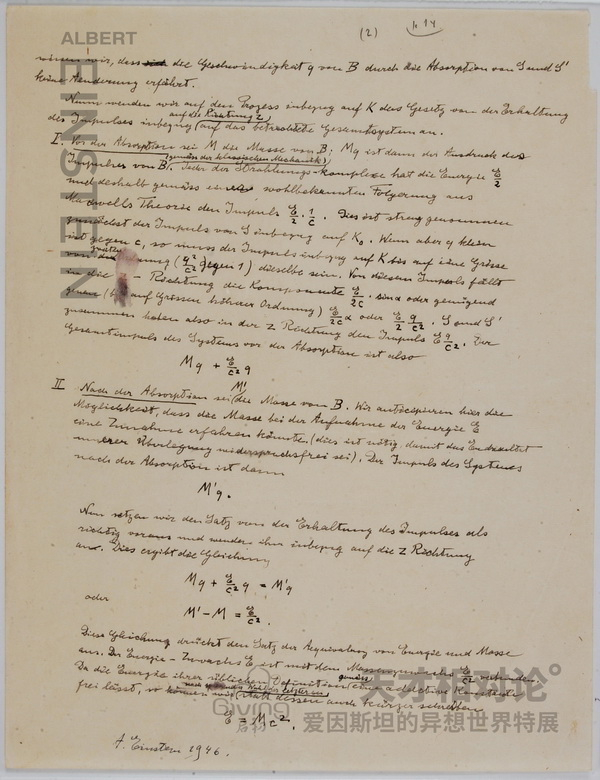 (2)
p. 14
ALBERT
EINSTEIN
wissen wir, dass die Geschwindigkeit q von B durch die Absorption von S und S'
keine Aenderung erfährt.
Nun wenden wir auf den Prozess inbezug auf K das Gesetz von der Erhaltung
auf die Richtung z
des Impulses inbezug auf das betrachtete Gesamtsystem an.
I. Vor der Absorption sei M die Masse von B; Mq ist dann der Ausdruck des
(gemäss der klassischen Mechanik)
Impulses von B. Jeder der Strahlungs-Komplexe hat die Energie E/2
und deshalb gemäss einer wohlbekannten Folgerung aus
Maxwells Theorie den Impuls E/2 · 1/c. Dies ist streng genommen
zunächst der Impuls von S inbezug auf K₀. Wenn aber q klein
ist gegen c, so muss der Impuls inbezug auf K bis auf eine Grösse
von (q²/c² gegen 1) dieselbe sein. Von diesem Impuls fällt
in die - Richtung die Komponente E/2c · sin α oder genügend
genau (bis auf Grössen höherer Ordnung) E/2c α oder E/2 q/c². S und S'
zusammen haben also in der z Richtung den Impuls E q/c². Der
Gesamtimpuls des Systems vor der Absorption ist also
Mq + E/c² q
II. Nach der Absorption sei M' die Masse von B. Wir antizipieren hier die
Möglichkeit, dass die Masse bei der Aufnahme der Energie E
eine Zunahme erfahren könnte (dies ist nötig, damit das Endresultat
unserer Überlegung widerspruchsfrei sei). Der Impuls des Systems
nach der Absorption ist dann
M'q.
Nun setzen wir den Satz von der Erhaltung des Impulses als
richtig voraus und wenden ihn inbezug auf die z Richtung
an. Dies ergibt die Gleichung
Mq + E/c² q = M'q
oder
M' − M = E/c².
Diese Gleichung drückt den Satz der Aequivalenz von Energie und Masse
aus. Der Energie-Zuwachs E ist mit dem Massenzuwachs E/c² verbunden.
Da die Energie ihrer üblichen Definition gemäss eine additive Konstante
frei lässt, so können wir statt dessen auch kürzer schreiben
E = Mc².
A. Einstein 1946.
天才相对论
爱因斯坦的异想世界特展